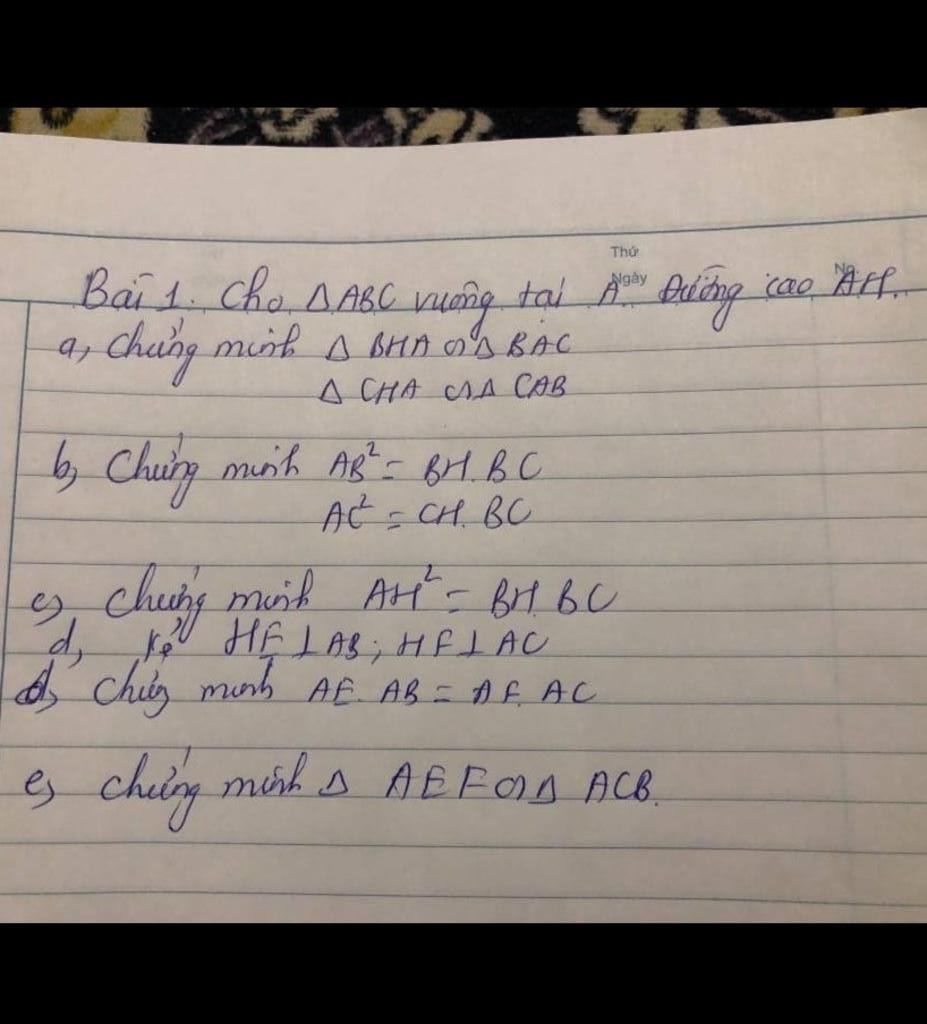 Thứ
Ngày No
Bài 1. Cho ΔABC vuông tại A. Đường cao AH.
a, Chứng minh Δ BHA ∽ Δ BAC
Δ CHA ∽ Δ CAB
b, Chứng minh AB² = BH. BC
AC² = CH. BC
c, Chứng minh AH² = BH. BC
d, Kẻ HE ⊥ AB; HF ⊥ AC
d, Chứng minh AE. AB = AF. AC
e, Chứng minh Δ AEF ∽ Δ ACB.